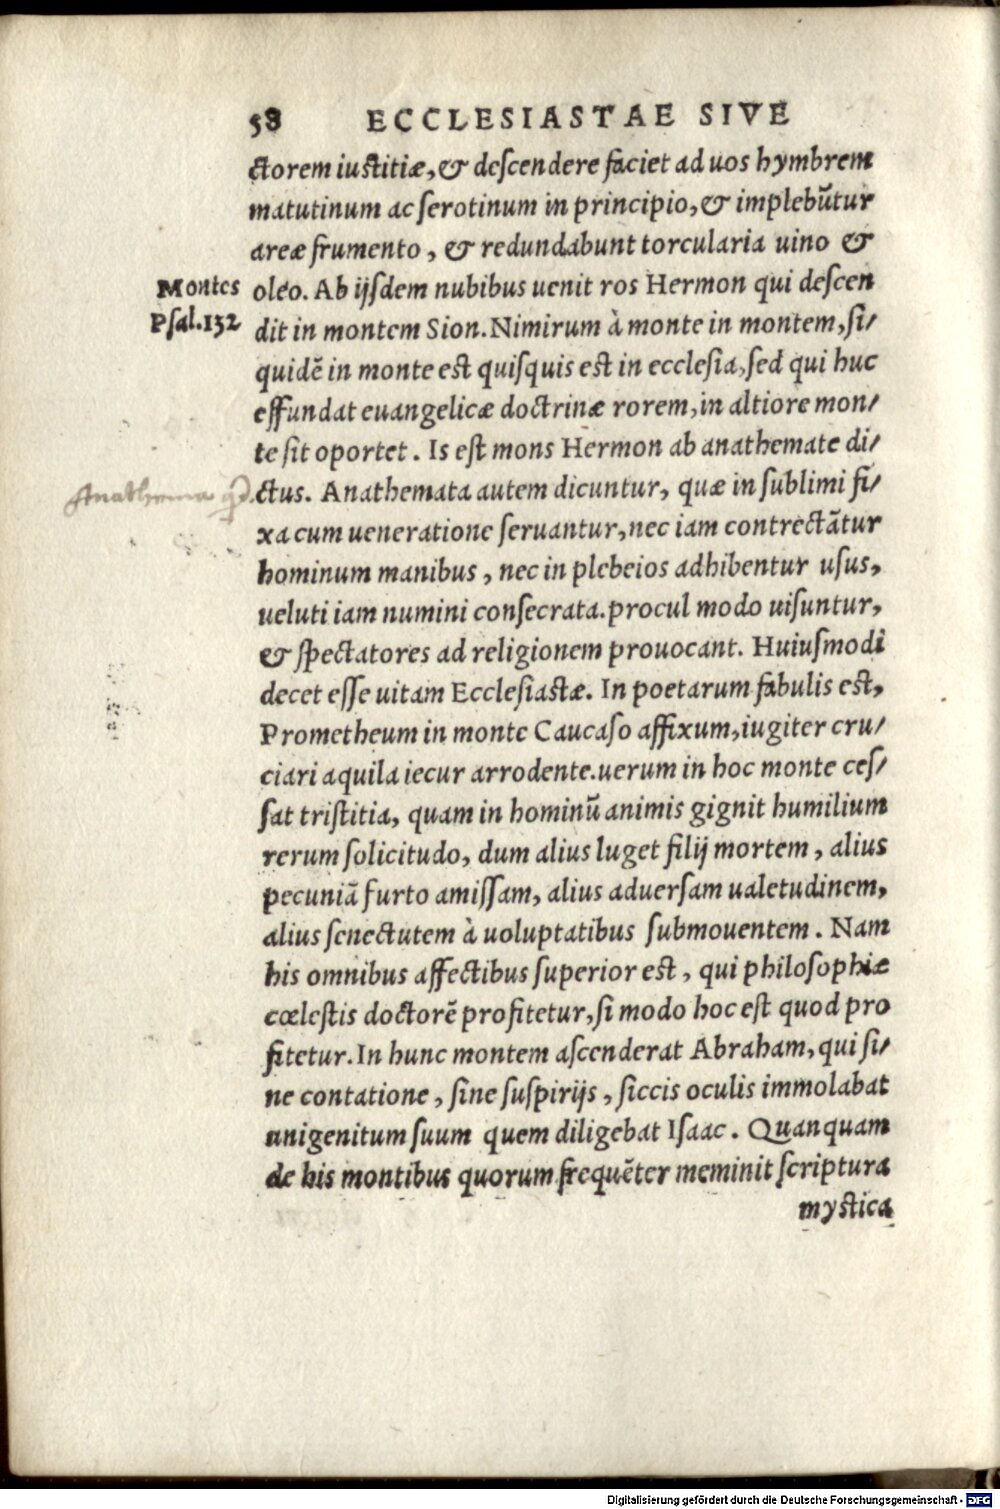 58 ECCLESIASTAE SIVE
ctorem iustitiæ, & descendere faciet ad uos hymbrem
matutinum ac serotinum in principio, & implebũtur
areæ frumento, & redundabunt torcularia uino &
Montes
oleo. Ab ijsdem nubibus uenit ros Hermon qui descen
Psal.132
dit in montem Sion. Nimirum à monte in montem, si/
quidẽ in monte est quisquis est in ecclesia, sed qui huc
effundat euangelicæ doctrinæ rorem, in altiore mon/
te sit oportet. Is est mons Hermon ab anathemate di/
Anathema
ctus. Anathemata autem dicuntur, quæ in sublimi fi/
xa cum ueneratione seruantur, nec iam contrectãtur
hominum manibus, nec in plebeios adhibentur usus,
ueluti iam numini consecrata. procul modo uisuntur,
& spectatores ad religionem prouocant. Huiusmodi
decet esse uitam Ecclesiastæ. In poetarum fabulis est,
Prometheum in monte Caucaso affixum, iugiter cru/
ciari aquila iecur arrodente. uerum in hoc monte ces/
sat tristitia, quam in hominũ animis gignit humilium
rerum solicitudo, dum alius luget filij mortem, alius
pecuniã furto amissam, alius aduersam ualetudinem,
alius senectutem à uoluptatibus submouentem. Nam
his omnibus affectibus superior est, qui philosophiæ
cœlestis doctorẽ profitetur, si modo hoc est quod pro
fitetur. In hunc montem ascenderat Abraham, qui si/
ne contatione, sine suspirijs, siccis oculis immolabat
unigenitum suum quem diligebat Isaac. Quanquam
de his montibus quorum frequẽter meminit scriptura
mystica
Digitalisierung gefördert durch die Deutsche Forschungsgemeinschaft - DFG